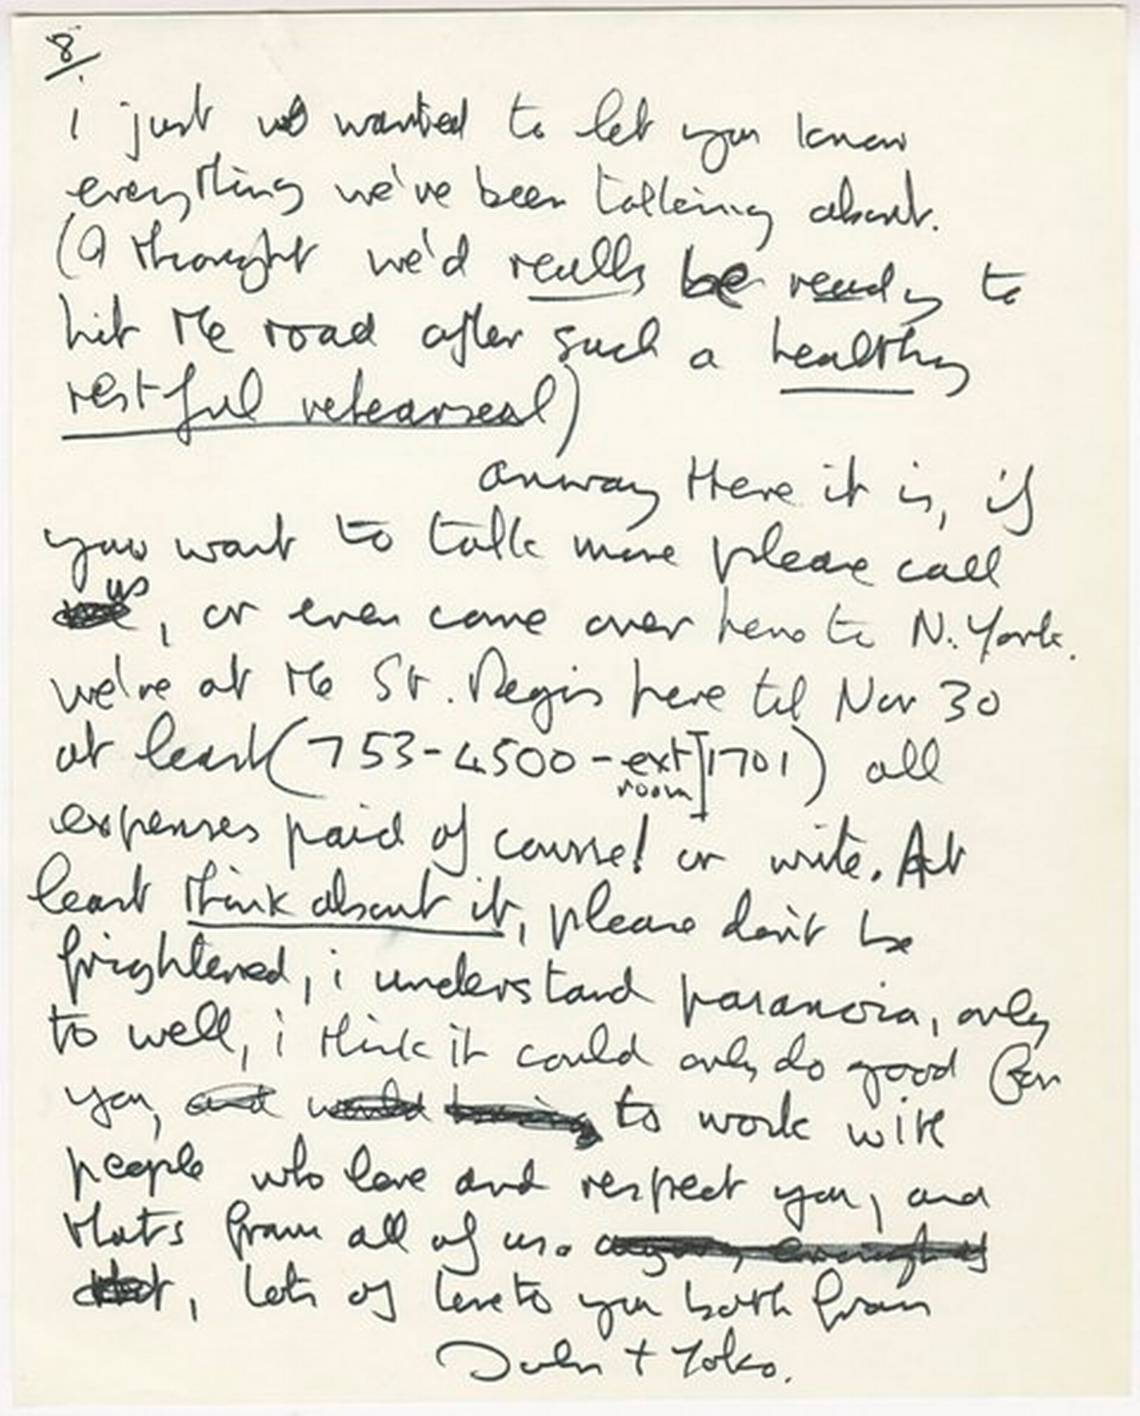 8
i just wanted to let you know
everything we've been talking about.
(I thought we'd really be ready to
hit the road after such a healthy
restful rehearsal)
anway there it is, if
you want to talk more please call
us, or even come over here to N. York.
we're at the St. Regis here til Nov 30
at least (753-4500-ext]1701) all
room
expenses paid of course! or write. At
least think about it, please don't be
frightened, i understand paranoia, only
to well, i think it could only do good for
you, and would to work with
people who love and respect you, and
that's from all of us. enough of
that, lots of love to you both from
John + Yoko.